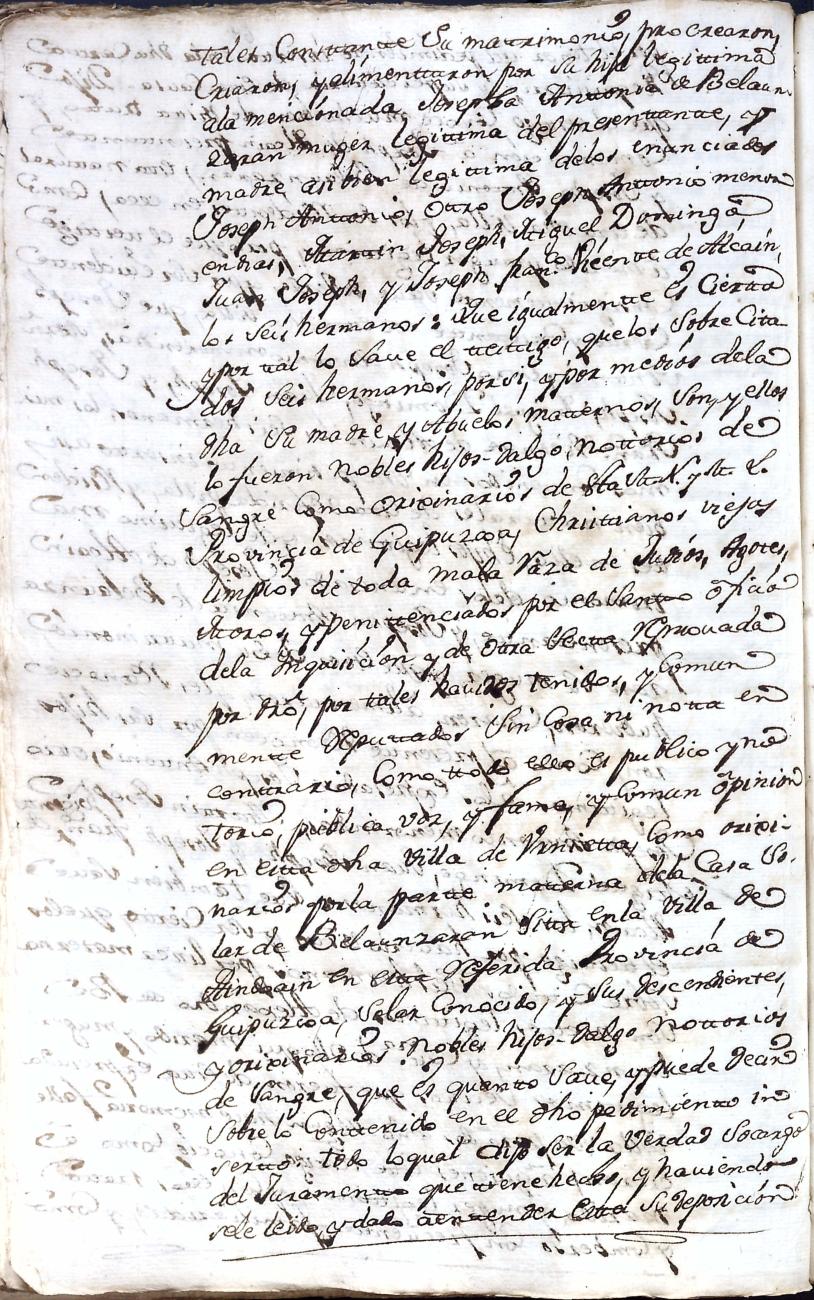 tales Constante Su matrimonio, procrearon,
Criaron, y alimenttaron por su hija legittima
ala mencionada Josepha Antonia de Belaun-
zaran muger legittima del presenttante, y
madre asibien legittima delos enunciados
Joseph Anttonio, Otro Joseph Anttonio menor
en dias, Martin Joseph, Miguel Domingo
Juan Joseph, y Joseph Fran.co Vicente de Alcain,
los Seis hermanos: Que igualmentte es Cierto
y por tal lo Save el testigo, quelos Sobre Cita-
dos Seis hermanos, por si, y por medios dela
dha Su madre, y Abuelos matternos, Son, y ellos
lo fueron Nobles hijos-Dalgo, nottorios de
Sangre Como Originarios de Esta M. N. y M. L.
Provincia de Guipuzcoa, Christtianos viejos
limpios de toda mala Raza de Judios, Agotes,
Moros, y penittenciados por el Santto oficio
dela Inquisicion y de Otra Secta Reprovada
por dro, por tales havidos tenidos, y Comun
mentte Reputtados Sin Cosa ni notta en
contrario, Como ttodo ello es publico y no
torio, publica voz, y fama, y Comun opinion
en Esta dha Villa de Urnietta, Como origi-
narios por la partte matterna dela Casa So-
lar de Belaunzaran Sitta enla Villa de
Andoain en esta Referida Provincia de
Guipuzcoa, Solar Conocido, y Sus descendientes,
y originarios Nobles hijos-Dalgo Nottorios
de Sangre, que es quanto Save, y puede Decir
Sobre lo Conttenido en el dho pedimiento in
serto: todo lo qual dijo ser la Verdad Socargo
del Juramentto que tiene hecho, y haviendo
sele leido, y dado aentender Esta Su deposicion